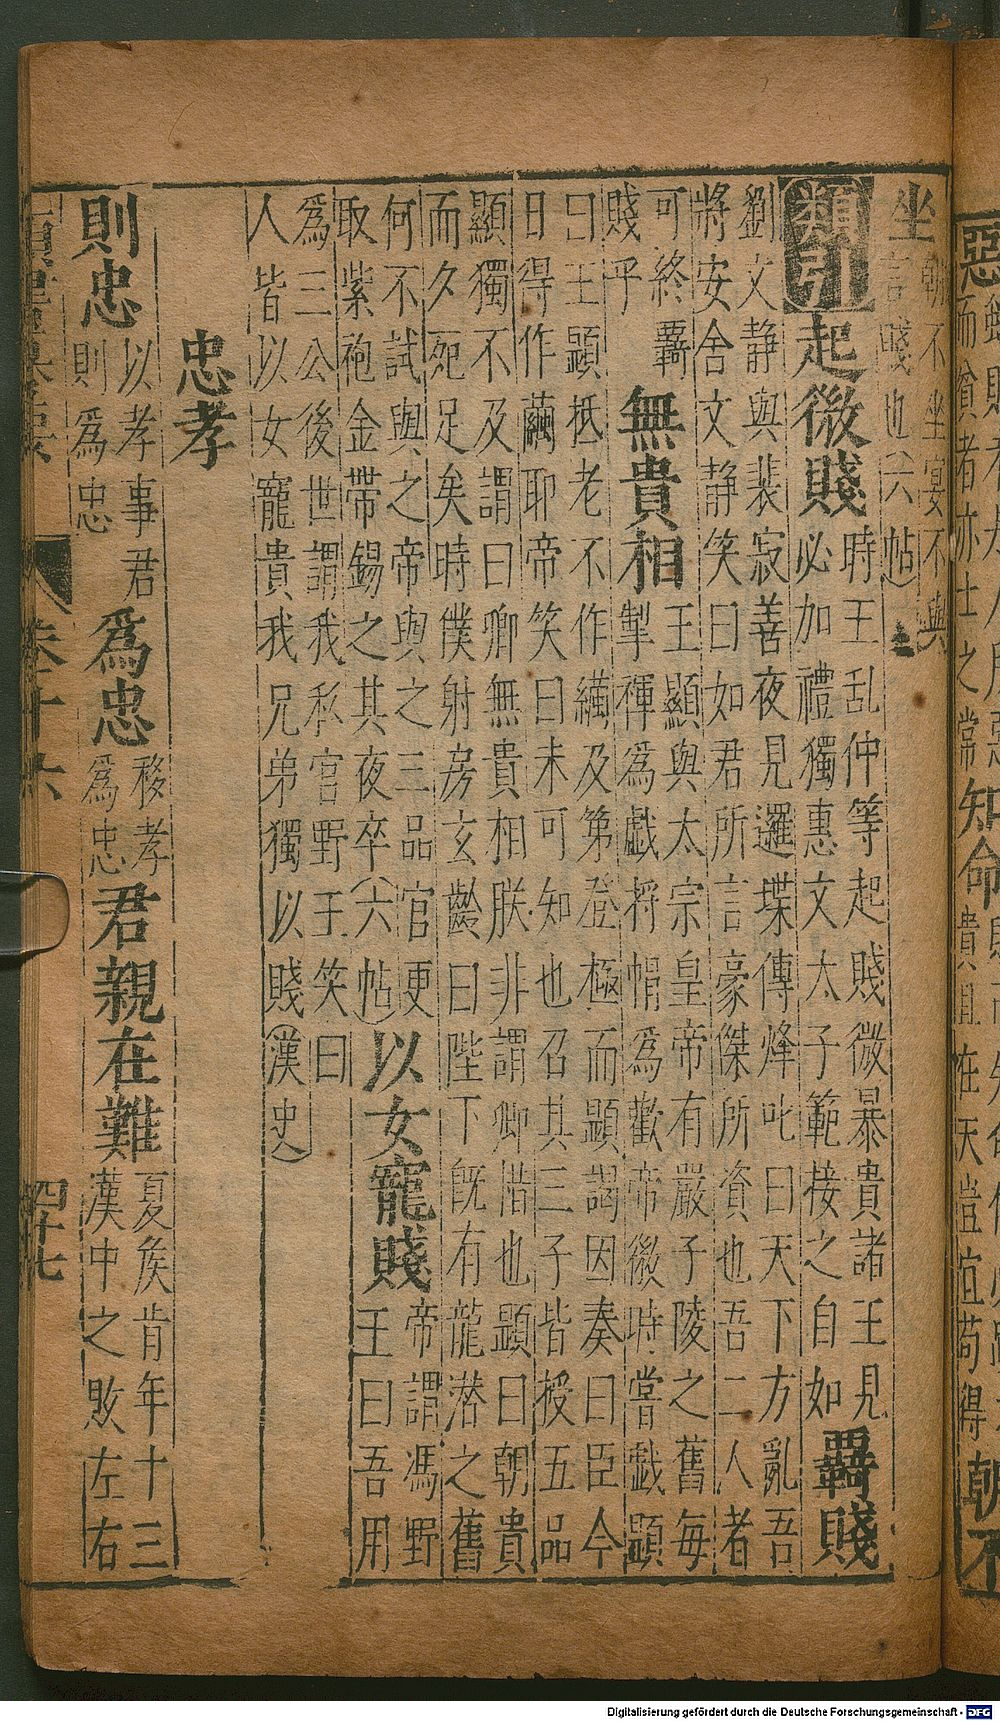 而貧者亦士之常
知命
貴且在天豈宜苟得
朝不
坐
朝不坐宴不與
言賤也(六帖)
類引
起微賤
時王乱仲等起賤微暴貴諸王見
必加禮獨惠文太子範接之自如
羇賤
劉文静與裴寂善夜見邏堞傳烽叱曰天下方亂吾
將安舍文静笑曰如君所言豪傑所資也吾二人者
可終羇
賤乎
無貴相
王顯與太宗皇帝有嚴子陵之舊每
掣褌爲戯将帽爲歡帝微時嘗戯顯
曰王顯柢老不作繭及第登極而顯謁因奏曰臣今
日得作繭耶帝笑曰未可知也召其三子皆授五品
顯獨不及謂曰卿無貴相朕非謂卿惜也顯曰朝貴
而夕死足矣時僕射房玄齡曰陛下旣有龍潜之舊
何不試與之帝與之三品官更
取紫袍金帶錫之其夜卒(六帖)
以女寵賤
帝謂馮野
王曰吾用
爲三公後世謂我私官野王笑曰
人皆以女寵貴我兄弟獨以賤(漢史)
忠孝
則忠
以孝事君
則爲忠
爲忠
移孝
爲忠
君親在難
夏侯肯年十三
漢中之敗左右
卷十六
四十七
Digitalisierung gefördert durch die Deutsche Forschungsgemeinschaft - DFG